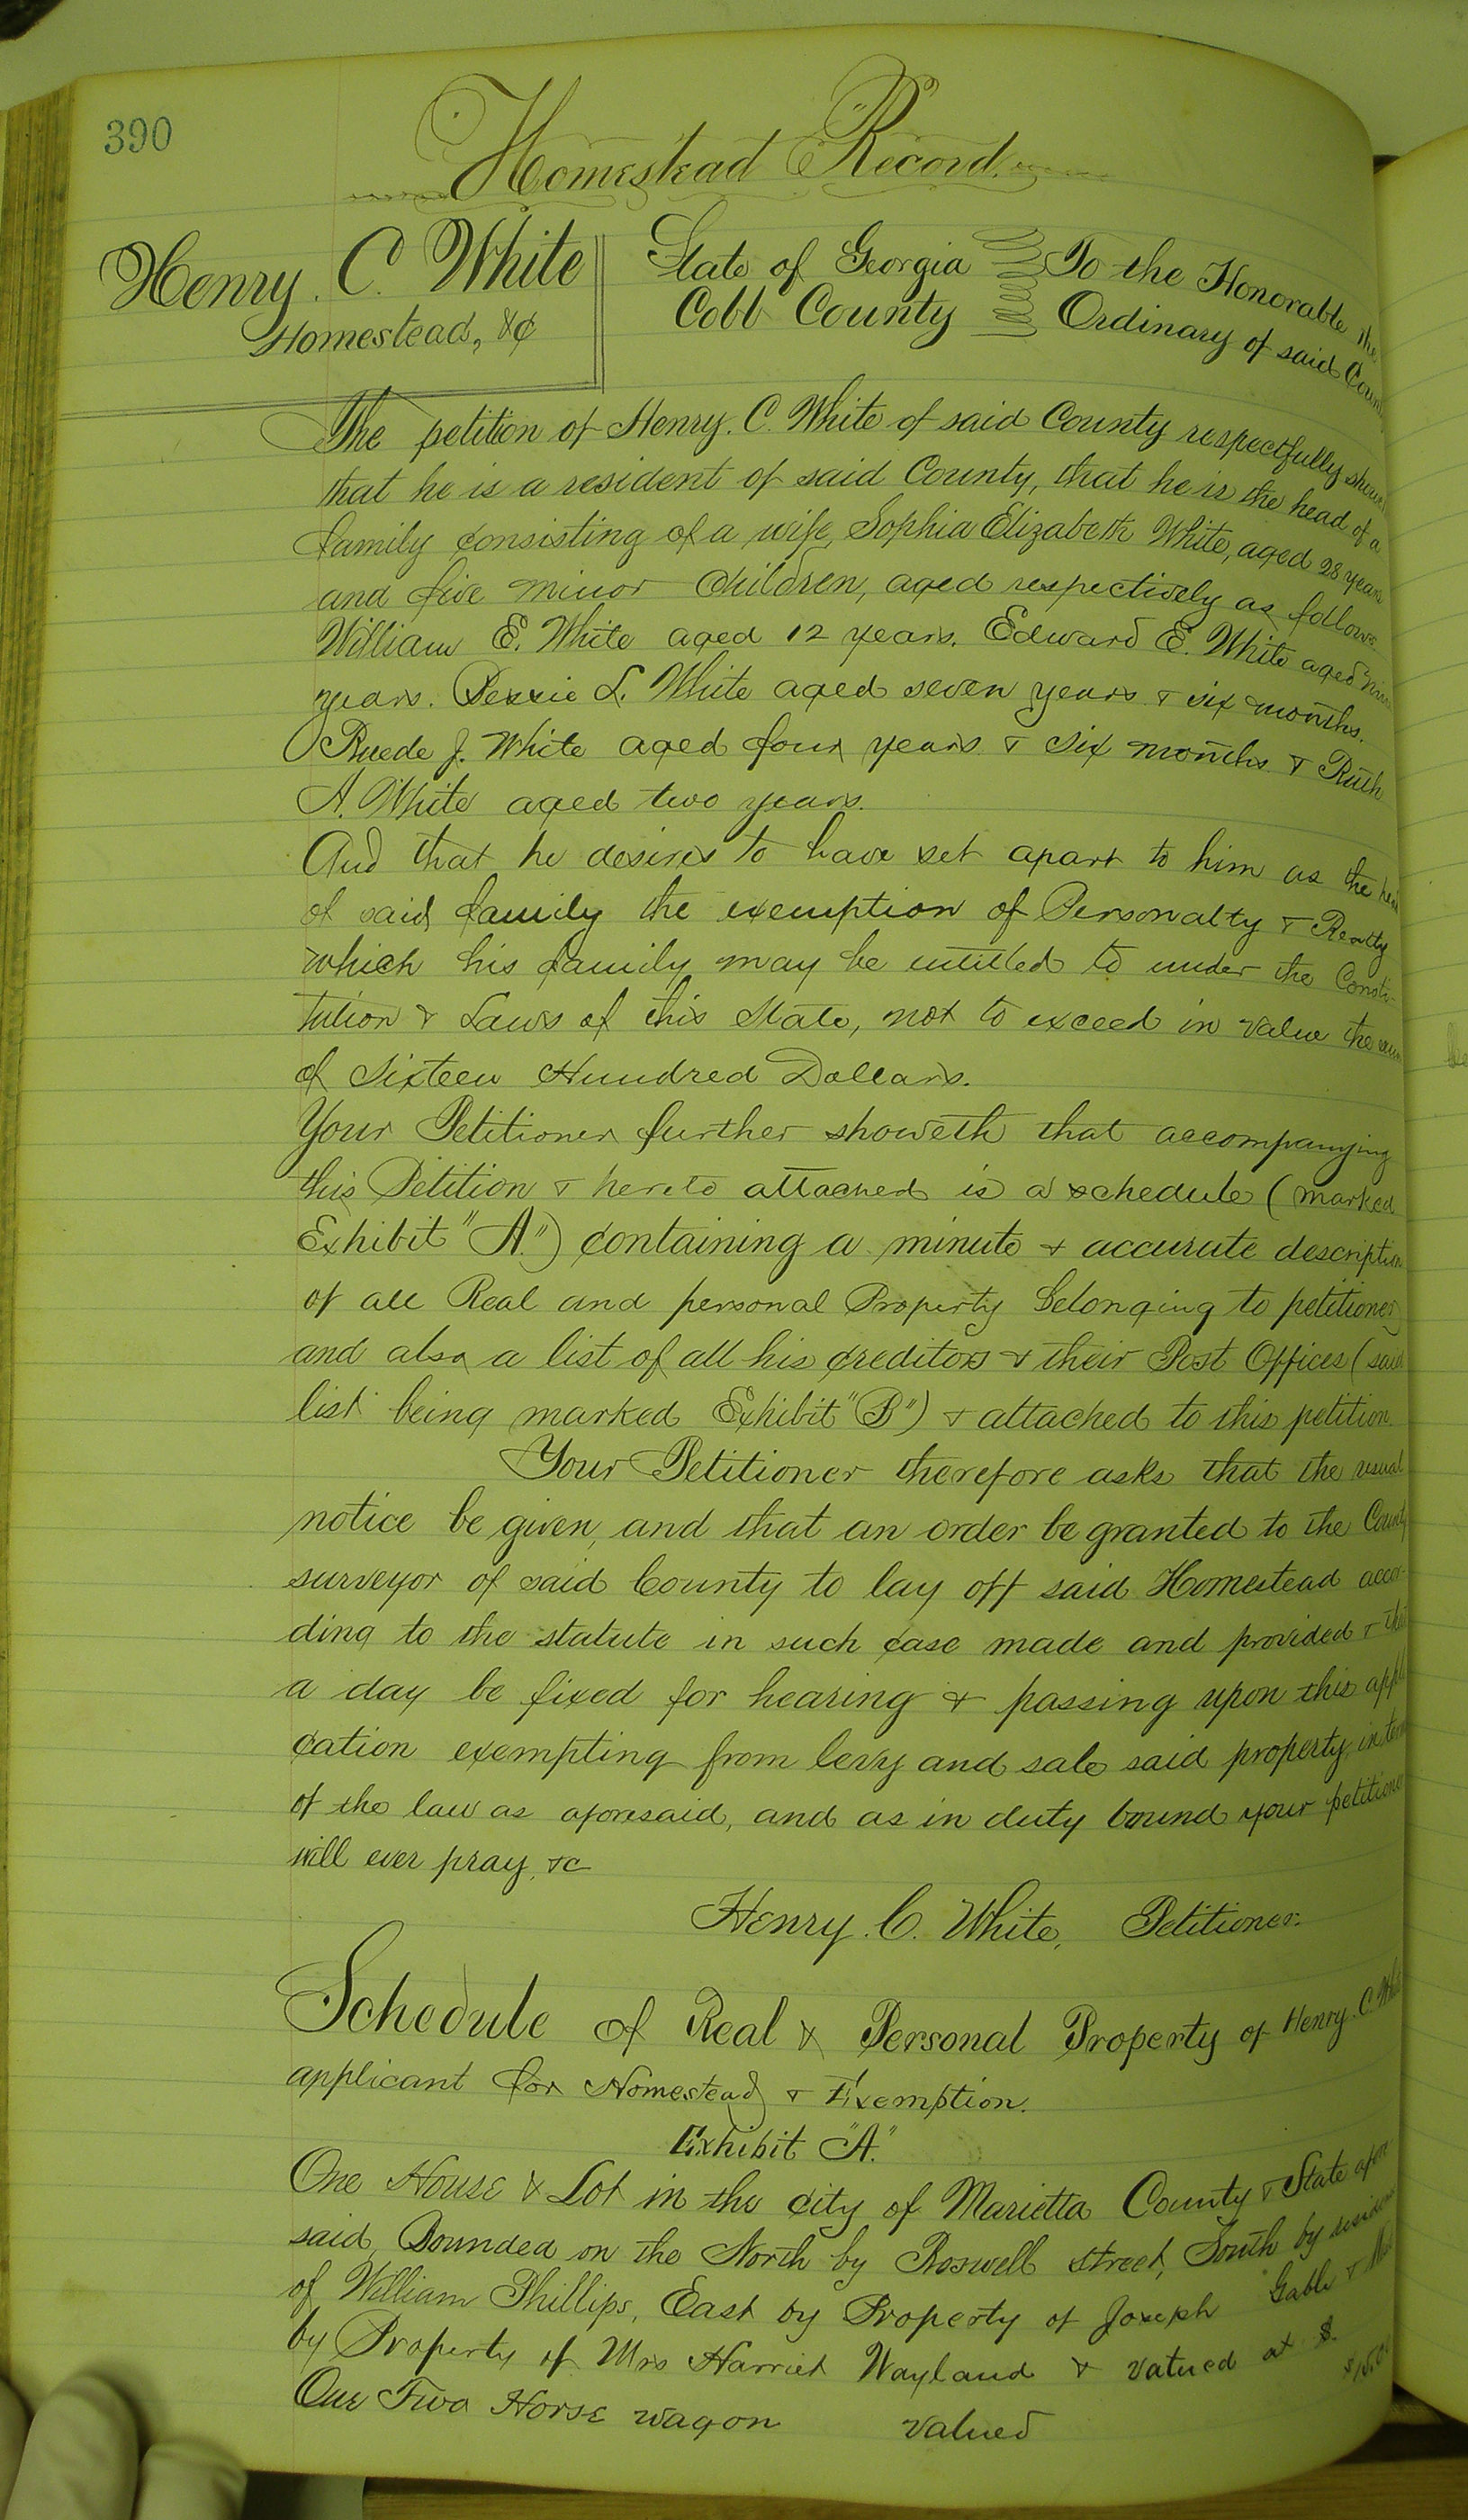 390
Homestead Record.
Henry. C. White
Homestead, &c
State of Georgia To the Honorable the
Cobb County Ordinary of said Coun
The petition of Henry. C. White of said County respectfully shows
that he is a resident of said County, that he is the head of a
family consisting of a wife, Sophia Elizabeth White, aged 28 years
and five minor Children, aged respectively as follows.
William E. White aged 12 years. Edward E. White aged nine
years. Bessie L. White aged seven years & six months.
J. White aged four years & six months & Ruth
A. White aged two years.
And that he desires to have set apart to him as the head
of said family the exemption of Personalty & Realty
which his family may be intitled to under the Consti-
tution & Laws of this State, not to exceed in value the sum
of Sixteen Hundred Dollars.
Your Petitioner further showeth that accompanying
this Petition & hereto attached is a schedule (marked
Exhibit "A.") containing a minute & accurate description
of all Real and personal Property belonging to petitioner
and also a list of all his creditors & their Post Offices (said
list being marked Exhibit "B") & attached to this petition
Your Petitioner therefore asks that the usual
notice be given, and that an order be granted to the County
surveyor of said County to lay off said Homestead accor-
ding to the statute in such case made and provided & that
a day be fixed for hearing & passing upon this appli
cation exempting from levy and sale said property, in
of the law as aforesaid, and as in duty bound your petitioner
will ever pray, &c
Henry. C. White, Petitioner.
Schedule of Real & Personal Property of Henry. C. White
applicant for Homestead & Exemption.
Exhibit "A."
One House & Lot in the city of Marietta County & State afore
said, Bounded on the North by Roswell street, South by
of William Phillips, East by Property of Joseph Gable &
by Property of Mrs Harriet Wayland & valued at $.
One Two Horse wagon valued